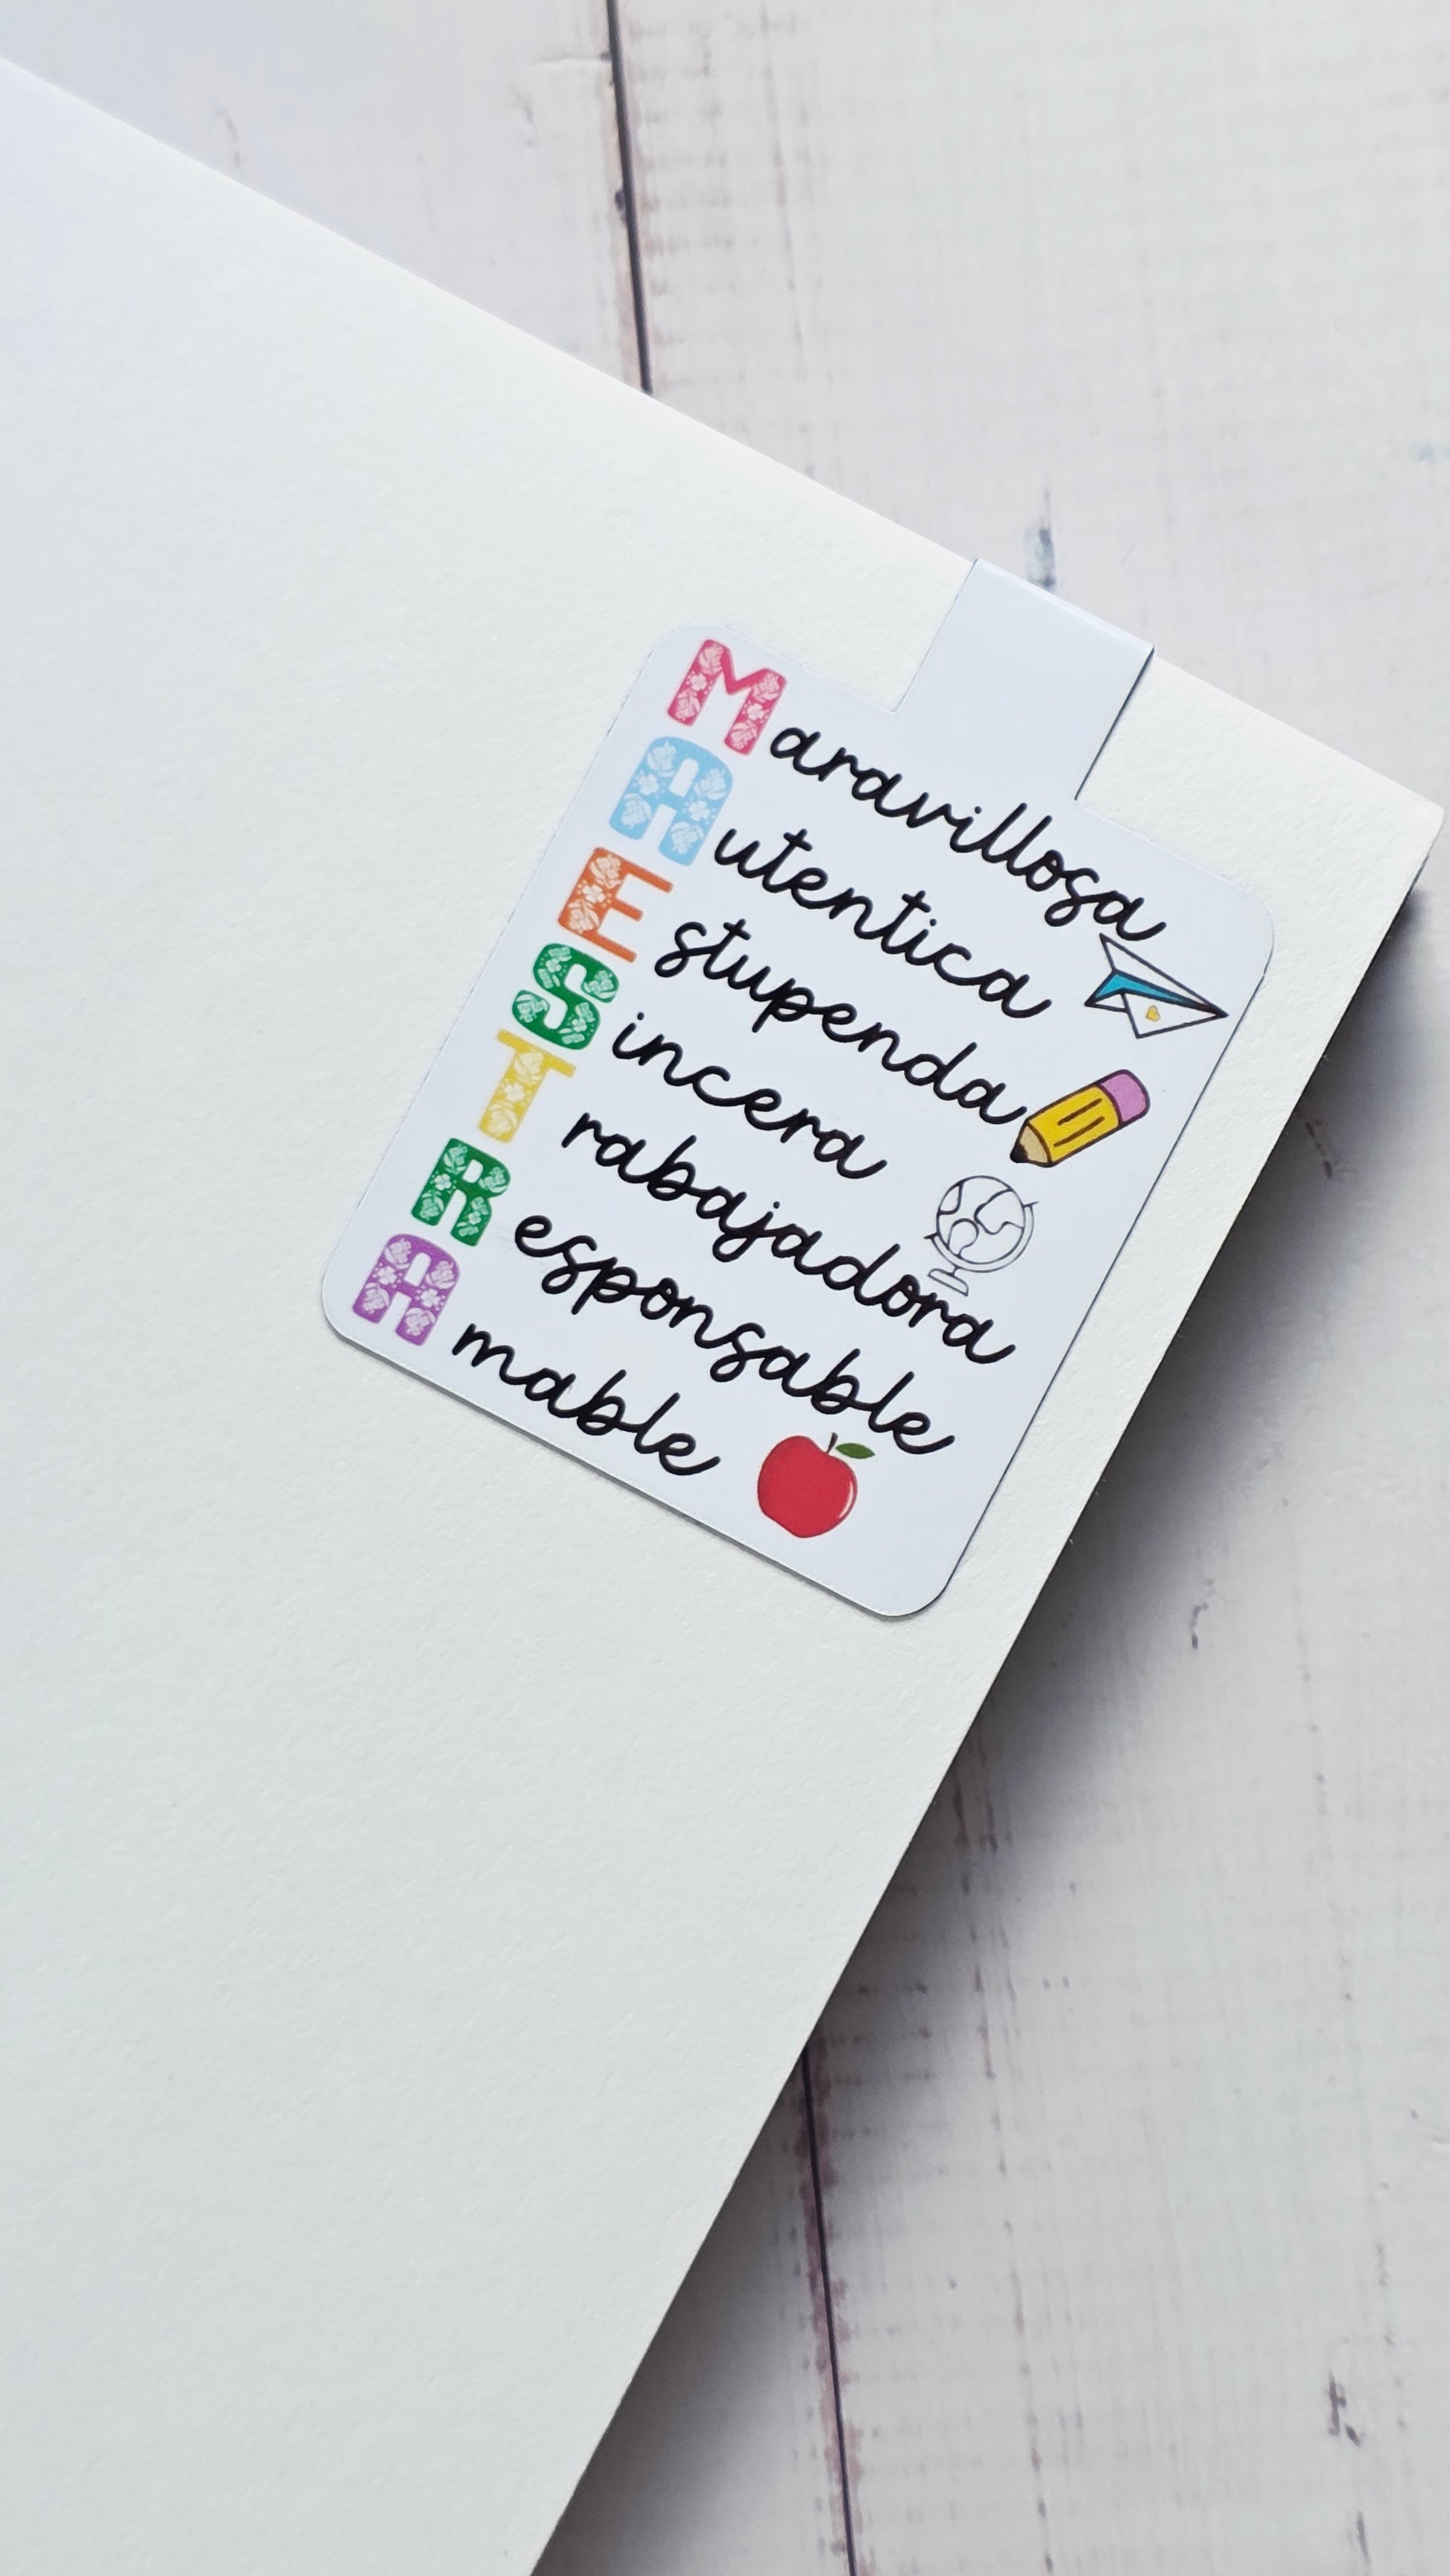 Maravillosa
Autentica
Estupenda
Sincera
Trabajadora
Responsable
Amable